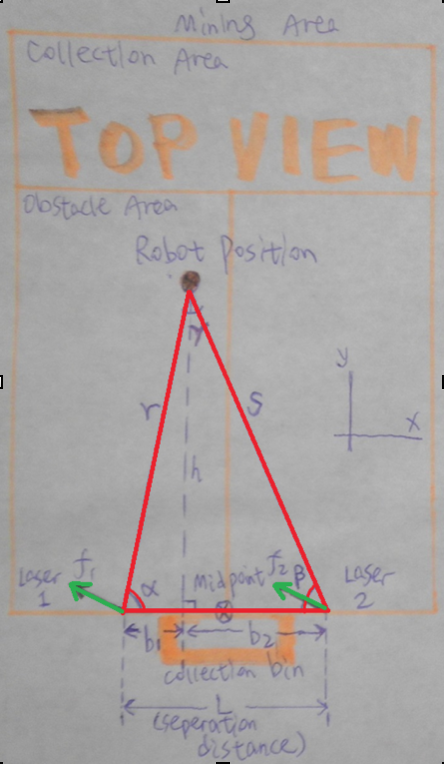 Mining Area
Collection Area
TOP VIEW
Obstacle Area
Robot Position
γ
y
x
r
S
h
Laser
1
f1
α
Midpoint
f2
β
Laser
2
b1
b2
collection bin
L
(seperation
distance)